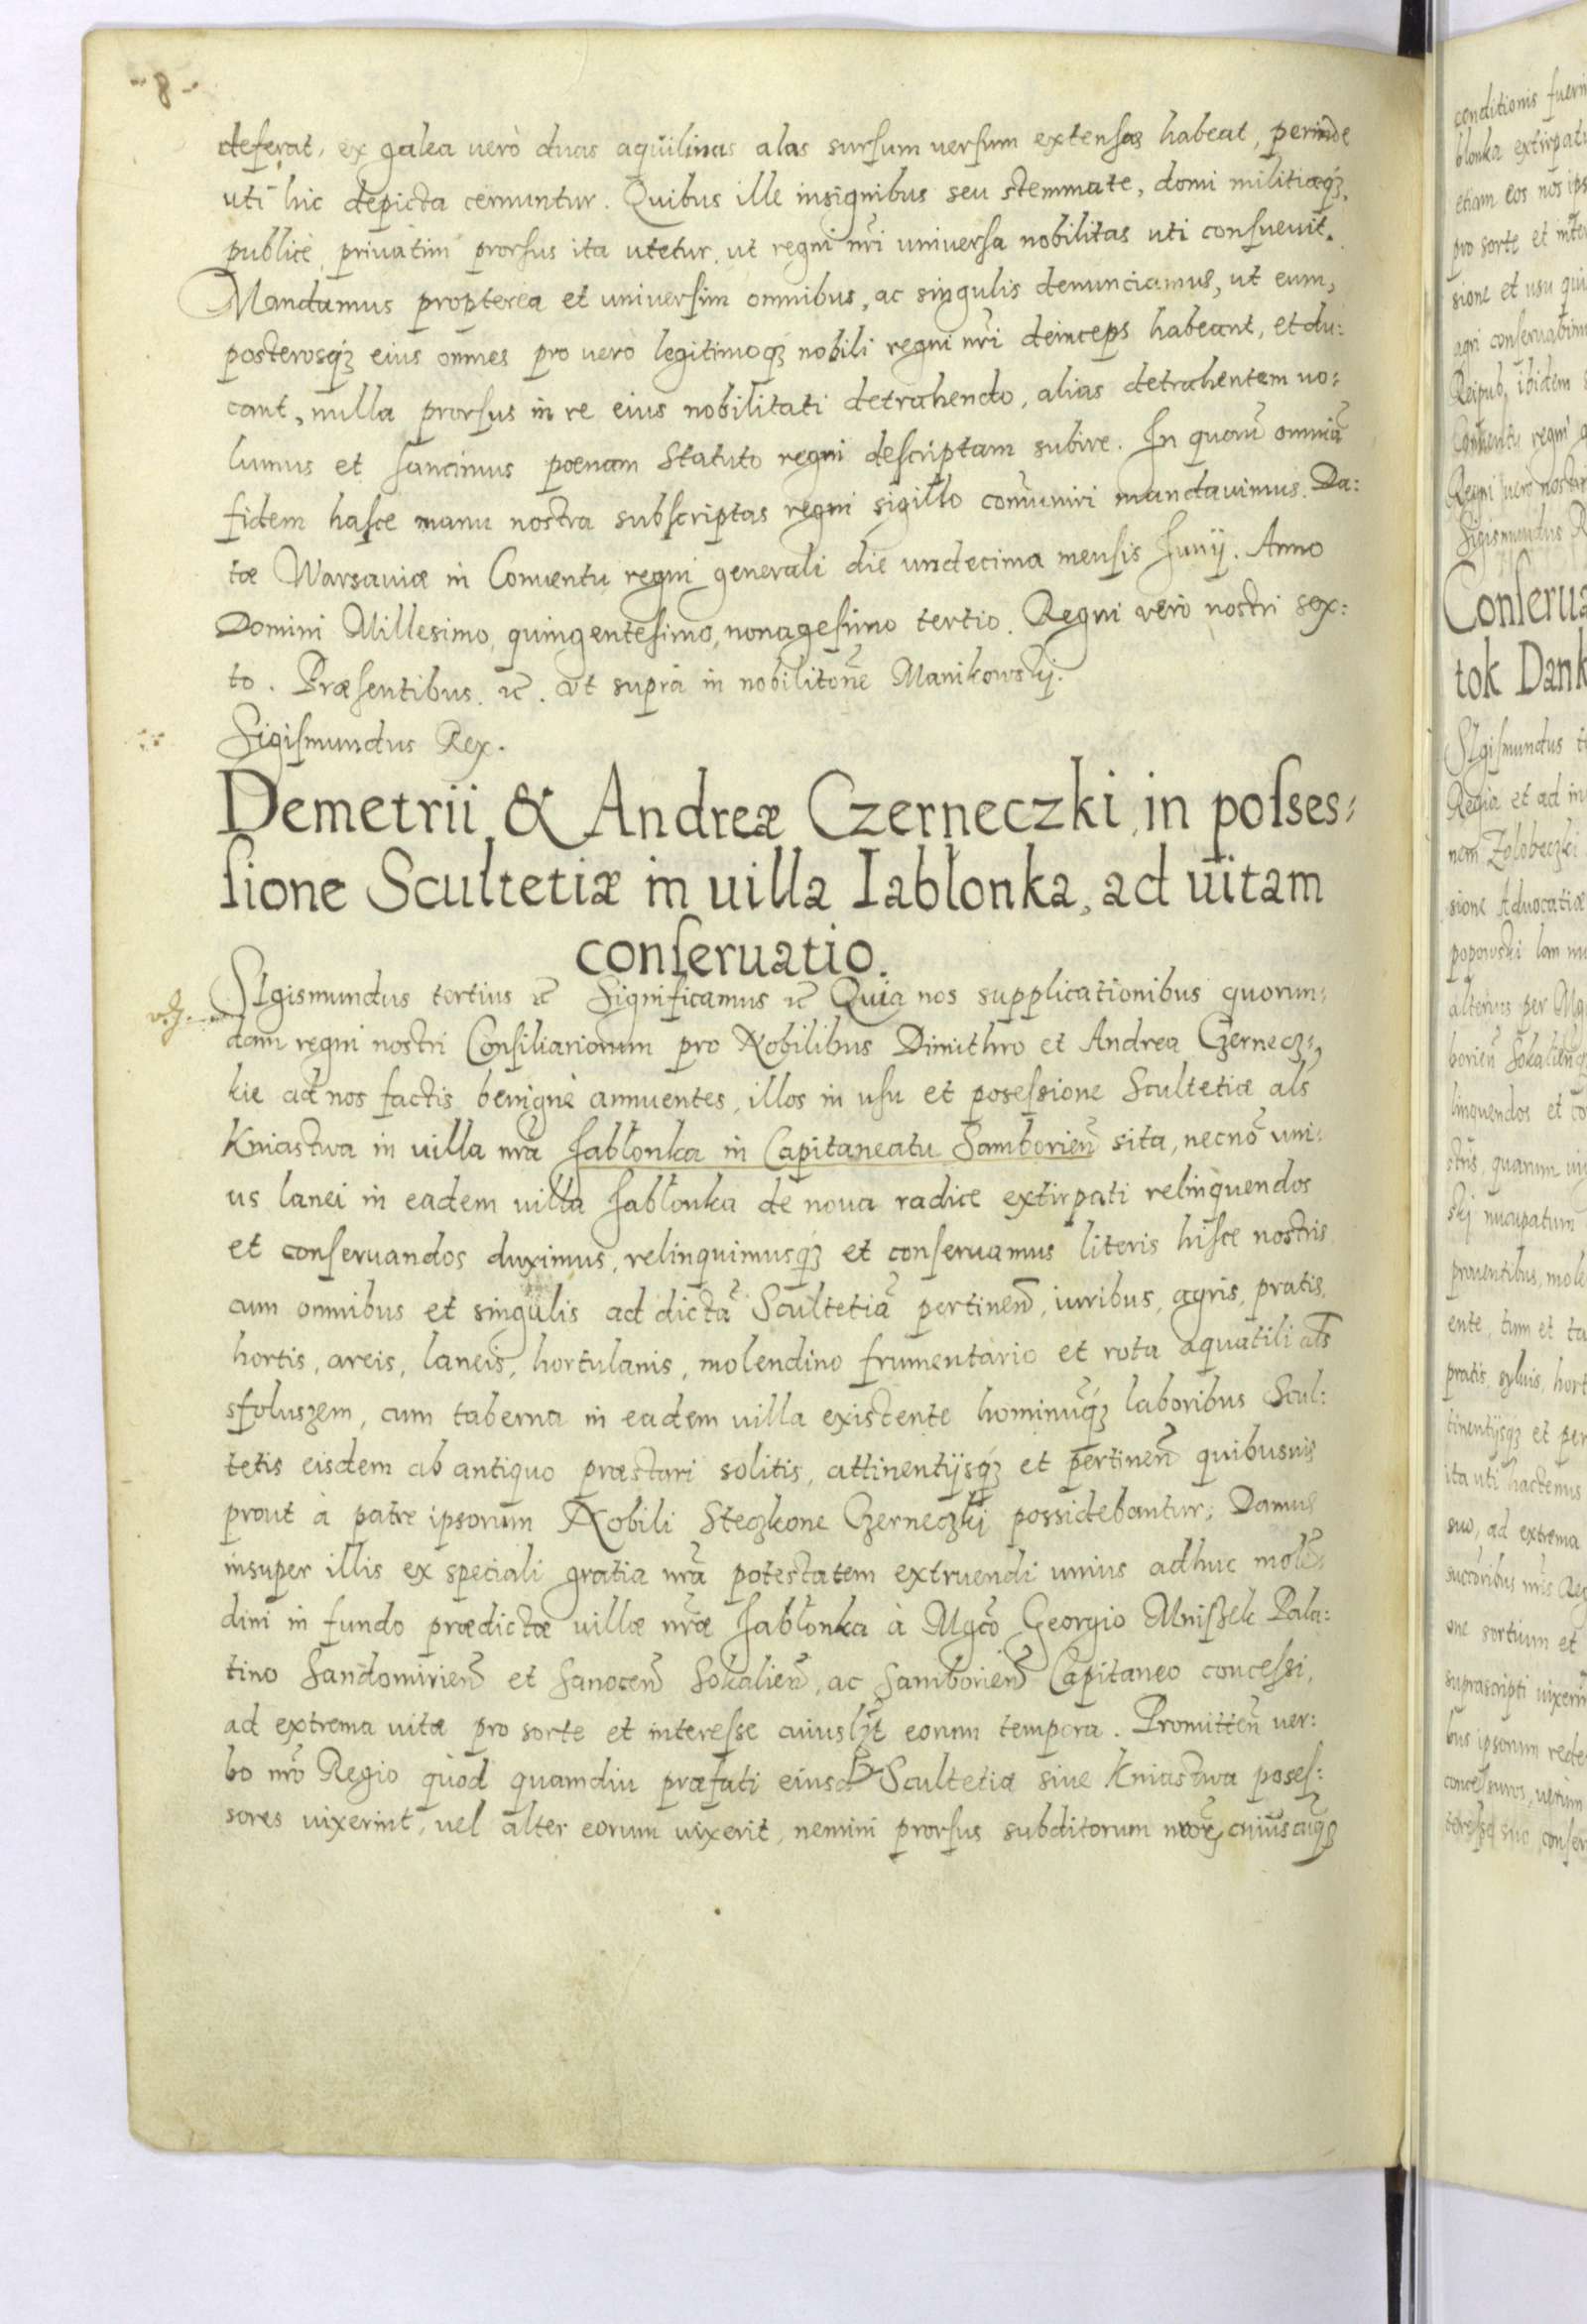 - 8 -
deferat, ex galea verò duas aquilinas alas sursum versum extensas habeat, perinde
uti hic depicta cernuntur. Quibus ille insignibus seu stemmate, domi militiaeq3,
publicè, privatim prorsus ita utetur, ut regni nr̃i universa nobilitas uti consuevit.
Mandamus propterea et universim omnibus, ac singulis denunciamus, ut eum,
posterosq3 eius omnes pro vero legitimoq3 nobili regni nr̃i deinceps habeant, et du:
cant, nulla prorsus in re eius nobilitati detrahendo, alias detrahentem uo:
lumus et sancimus pœnam Statuto regni descriptam subire. In quorũ omniũ
fidem hasce manu nostra subscriptas regni sigillo com̃uniri mandavimus. Da:
tæ Warsaviæ in Conventu regni generali die undecima mensis Junij. Anno
Domini Millesimo, quingentesimo, nonagesimo tertio. Regni verò nostri sex:
to. Præsentibus. ꝛc. vt suprà in nobilitoñe Manikowskj.
Sigismundus Rex.
Demetrii & Andreæ Czerneczki, in posses:
sione Scultetiæ in uilla Iablonka, ad uitam
conseruatio.
SIgismundus tertius ꝛc Significamus ꝛc Quia nos supplicationibus quorun:
dam regni nostri Consiliariorum pro Nobilibus Dimithro et Andrea Czernecz:
kie ad nos factis benignè annuentes, illos in usu et posessione Scultetiæ als
Kniastwa in villa nrã Jabłonka in Capitaneatu Samborien̄ sita, necnõ uni:
us lanei in eadem villa Jabłonka de nova radice extirpati relinquendos
et conseruandos duximus, relinquimusq3 et conseruamus literis hisce nostris
cum omnibus et singulis ad dictã Scultetiã pertinen̄, iuribus, agris, pratis,
hortis, areis, laneis, hortulanis, molendino frumentario et rota aquatili als
sfoluszem, cum taberna in eadem villa existente hominũq3 laboribus Scul:
tetis eisdem ab antiquo præstari solitis, attinentijsq3 et pertinen̄ quibusuis
prout à patre ipsorum Nobili Steczkone Czerneczkj possidebantur; Damus
insuper illis ex speciali gratia nrã potestatem extruendi unius adhuc molẽ:
dini in fundo prædictæ villæ nræ̃ Jabłonka à Mgcõ Georgio Mniszek Pala:
tino Sandomirien̄ et Sanocen̄ Sokalien̄, ac Samborien̄ Capitaneo concessi,
ad extrema uitæ pro sorte et interesse cuiusl3t eorum tempora. Promitten̄ ver:
bo nrõ Regio quòd quamdiu præfati eiusd Scultetiæ siue Kniastwa poses:
sores uixerint, vel alter eorum uixerit, nemini prorsus subditorum nror̃ cuiuscũq3
conditionis fuerin
blonka extirpati
etiam eos nos ips
pro sorte et inter
sione et usu qui
agri conseruabim
Reipub, ibidem
Conventu regni g
Regni vero nostri
Sigismundus R
Conserua
tok Dank
SIgismundus t
Regia et ad in
nem Zolobeczki
sione Aduocatiæ
popowski lan
alterius per Mg
borien̄ Sokalien̄
linquendos et co
stris, quarum
skj nucupatum
prouentibus, mole
ente, tum et ta
pratis, syluis, hort
tinentijsq3 et per
ita uti hactenus
suo, ad extrema
succoribus nris Reg
one sortium et
suprascripti uixerin
bus ipsorum rede
concessuros, uerum
teresse suo, conser